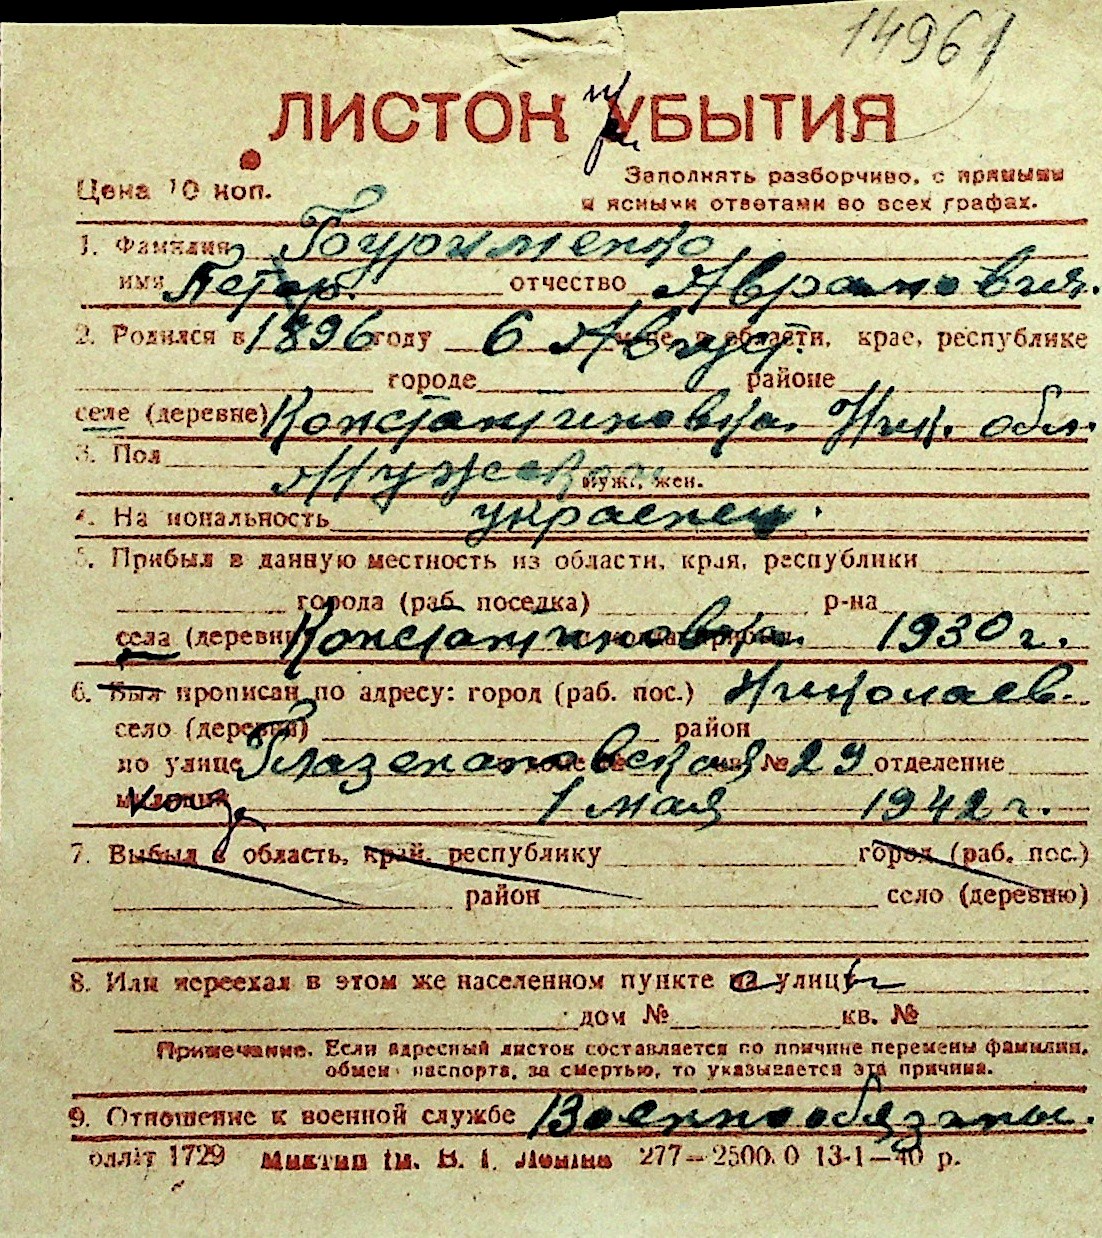 14961
ЛИСТОК при УБЫТИЯ
Цена 10 коп.
Заполнять разборчиво, с прямыми
и ясными ответами во всех графах.
1. Фамилия Буришенко
имя Петр. отчество Аврамович.
2. Родился в 1896 году 6 Август. области, крае, республике
городе районе
селе (деревне) Константиновка. Ник. обл.
3. Пол Мужской муж., жен.
4. Национальность украенец.
5. Прибыл в данную местность из области, края, республики
города (раб поселка) р-на
села (деревни Константиновка. 1930 г.
6. Был прописан по адресу: город (раб. пос.) Николаев.
село (деревня) район
по улице Глазенаповская № 29 отделение
1 мая 1942 г.
7. Выбыл в область, край, республику город (раб. пос.)
район село (деревню)
8. Или переехал в этом же населенном пункте с улицы
дом № кв. №
Примечание. Если адресный листок составляется по причине перемены фамилии,
обмен паспорта, за смертью, то указывается эта причина.
9. Отношение к военной службе Военнообязаны.
олліт 1729 ім. В. І. Леніна 277—2500.0 13-1—40 р.